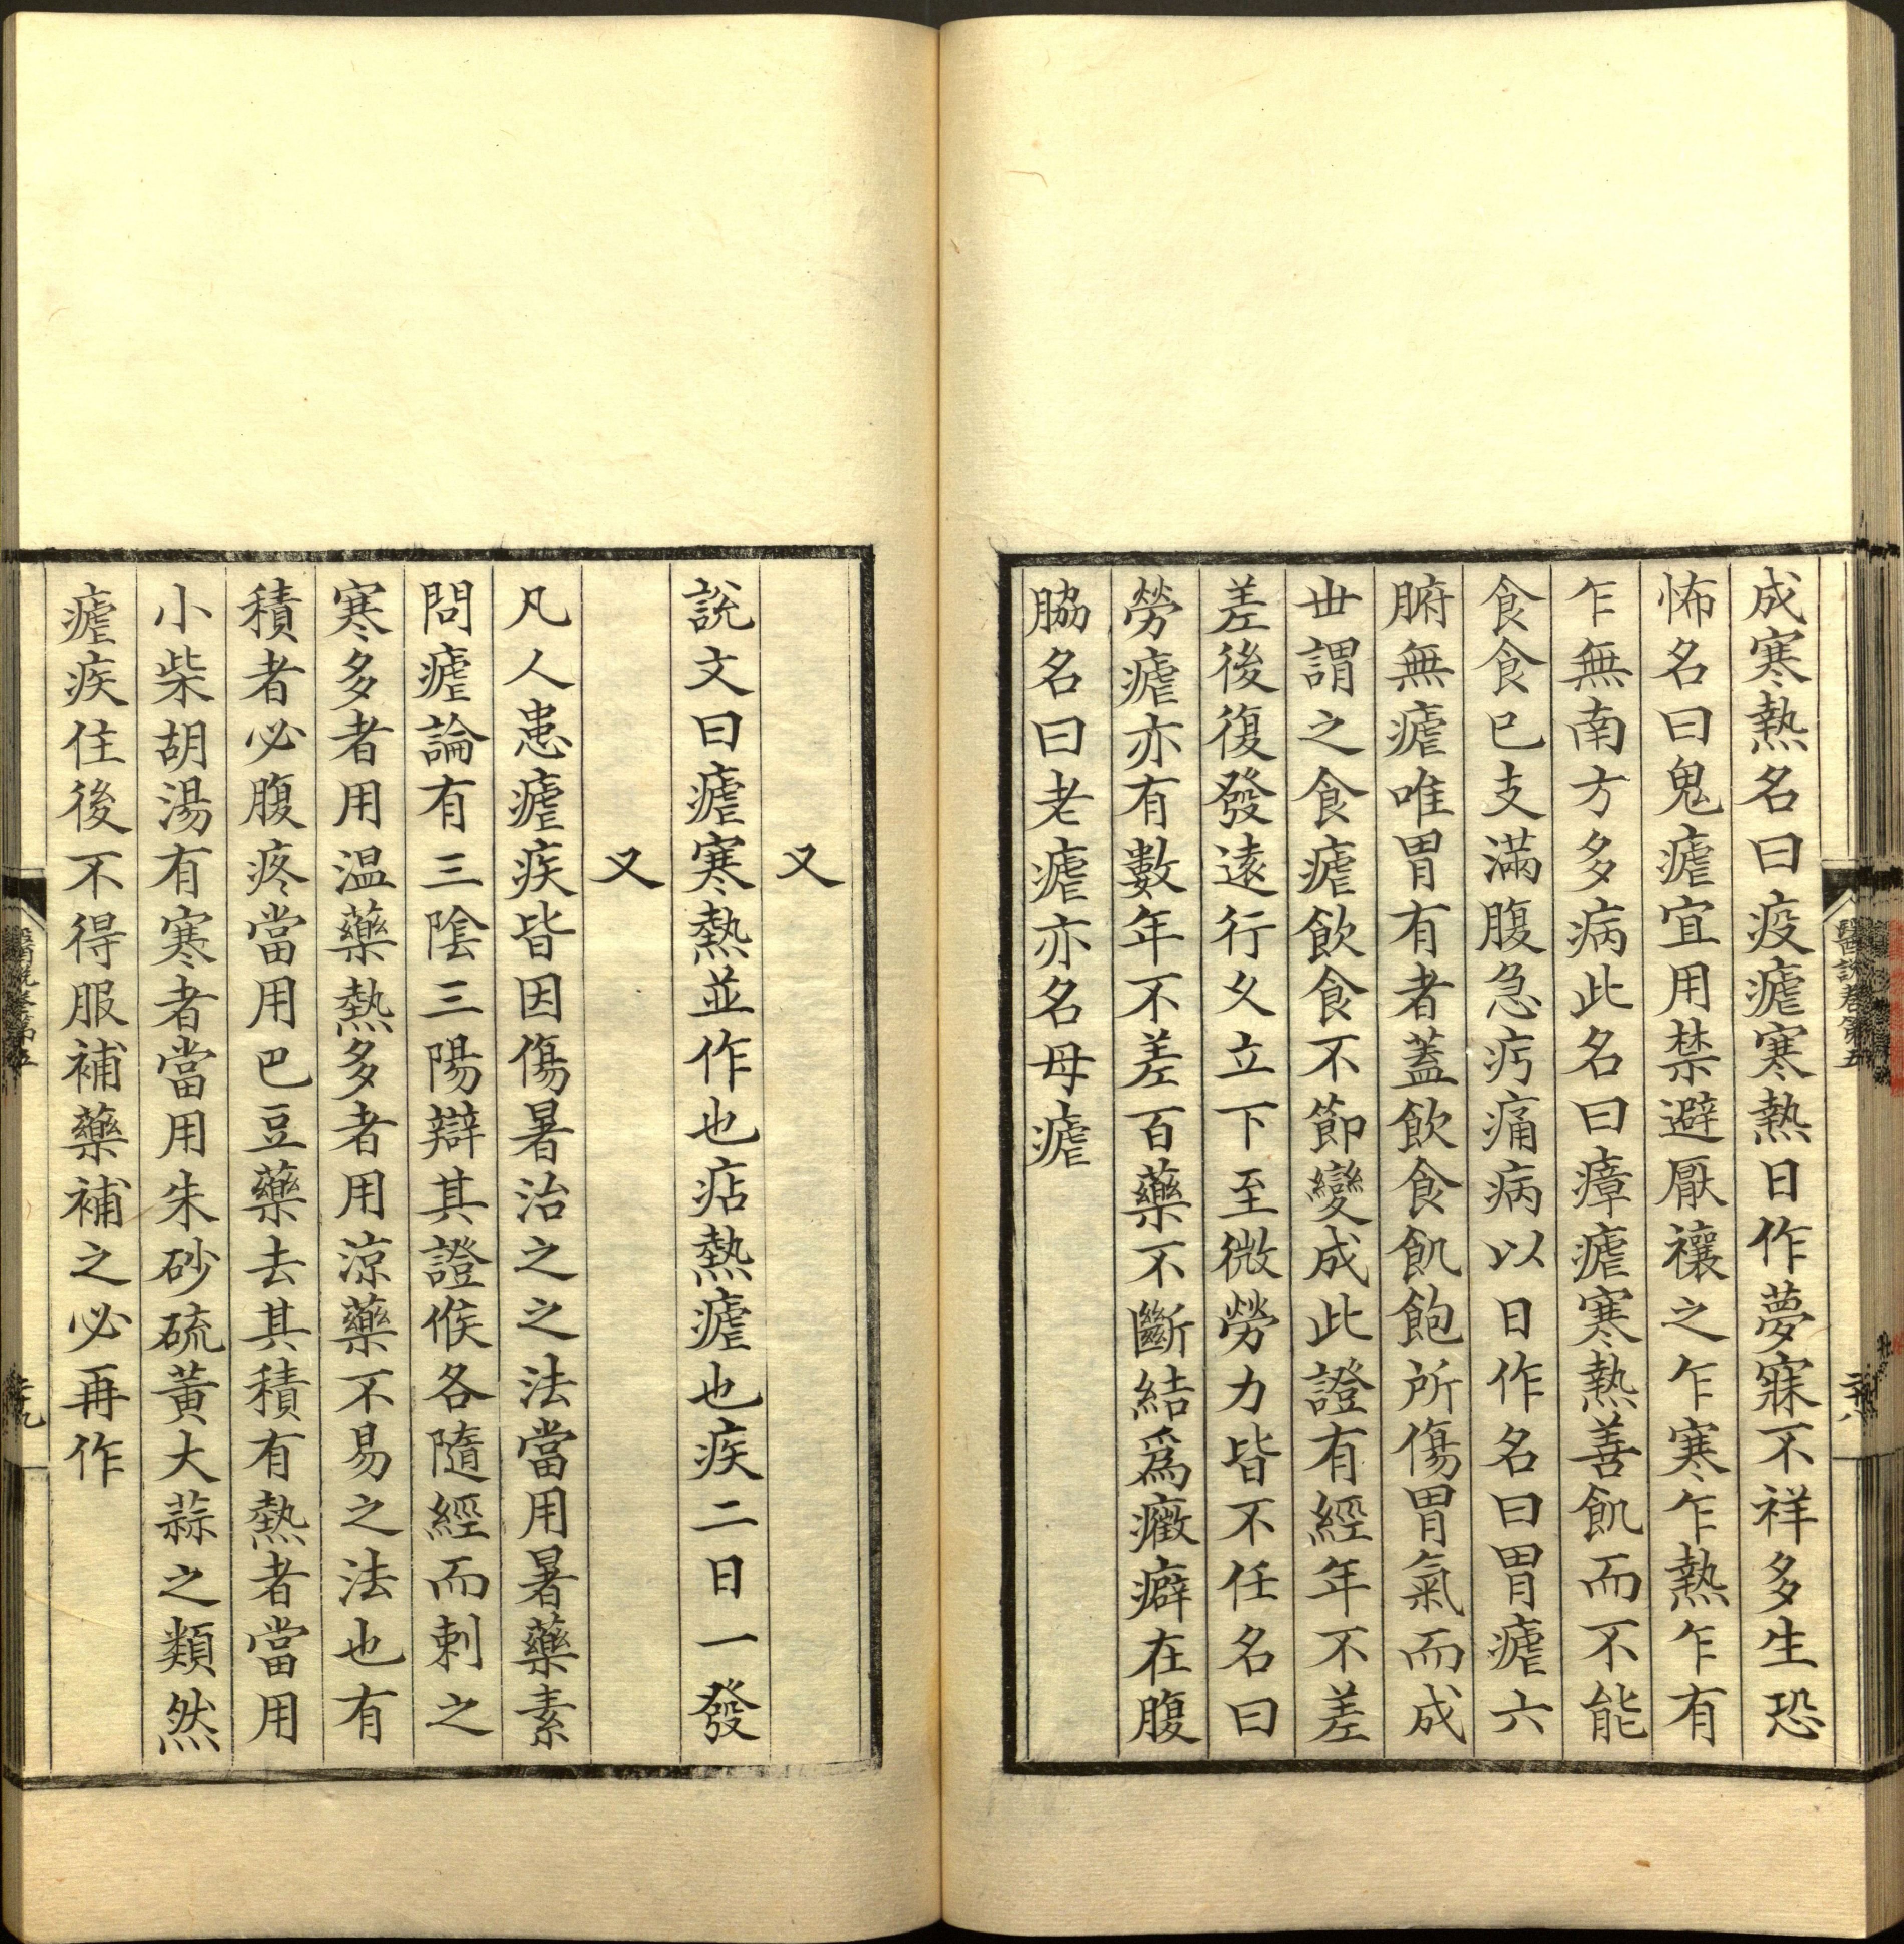 成寒熱名曰疫瘧寒熱日作夢寐不祥多生恐
怖名曰鬼瘧宜用禁避厭禳之乍寒乍熱乍有
乍無南方多病此名曰瘴瘧寒熱善飢而不能
食食已支滿腹急㽲痛病以日作名曰胃瘧六
腑無瘧唯胃有者蓋飲食飢飽所傷胃氣而成
丗謂之食瘧飲食不節變成此證有經年不差
差後復發遠行久立下至微勞力皆不任名曰
勞瘧亦有數年不差百藥不斷結爲癥癖在腹
脇名曰老瘧亦名母瘧
醫說卷第五
又
說文曰瘧寒熱並作也痁熱瘧也疾二日一發
又
凡人患瘧疾皆因傷暑治之之法當用暑藥素
問瘧論有三陰三陽辯其證候各隨經而刺之
寒多者用温藥熱多者用涼藥不易之法也有
積者必腹疼當用巴豆藥去其積有熱者當用
小柴胡湯有寒者當用朱砂硫黃大蒜之類然
瘧疾住後不得服補藥補之必再作